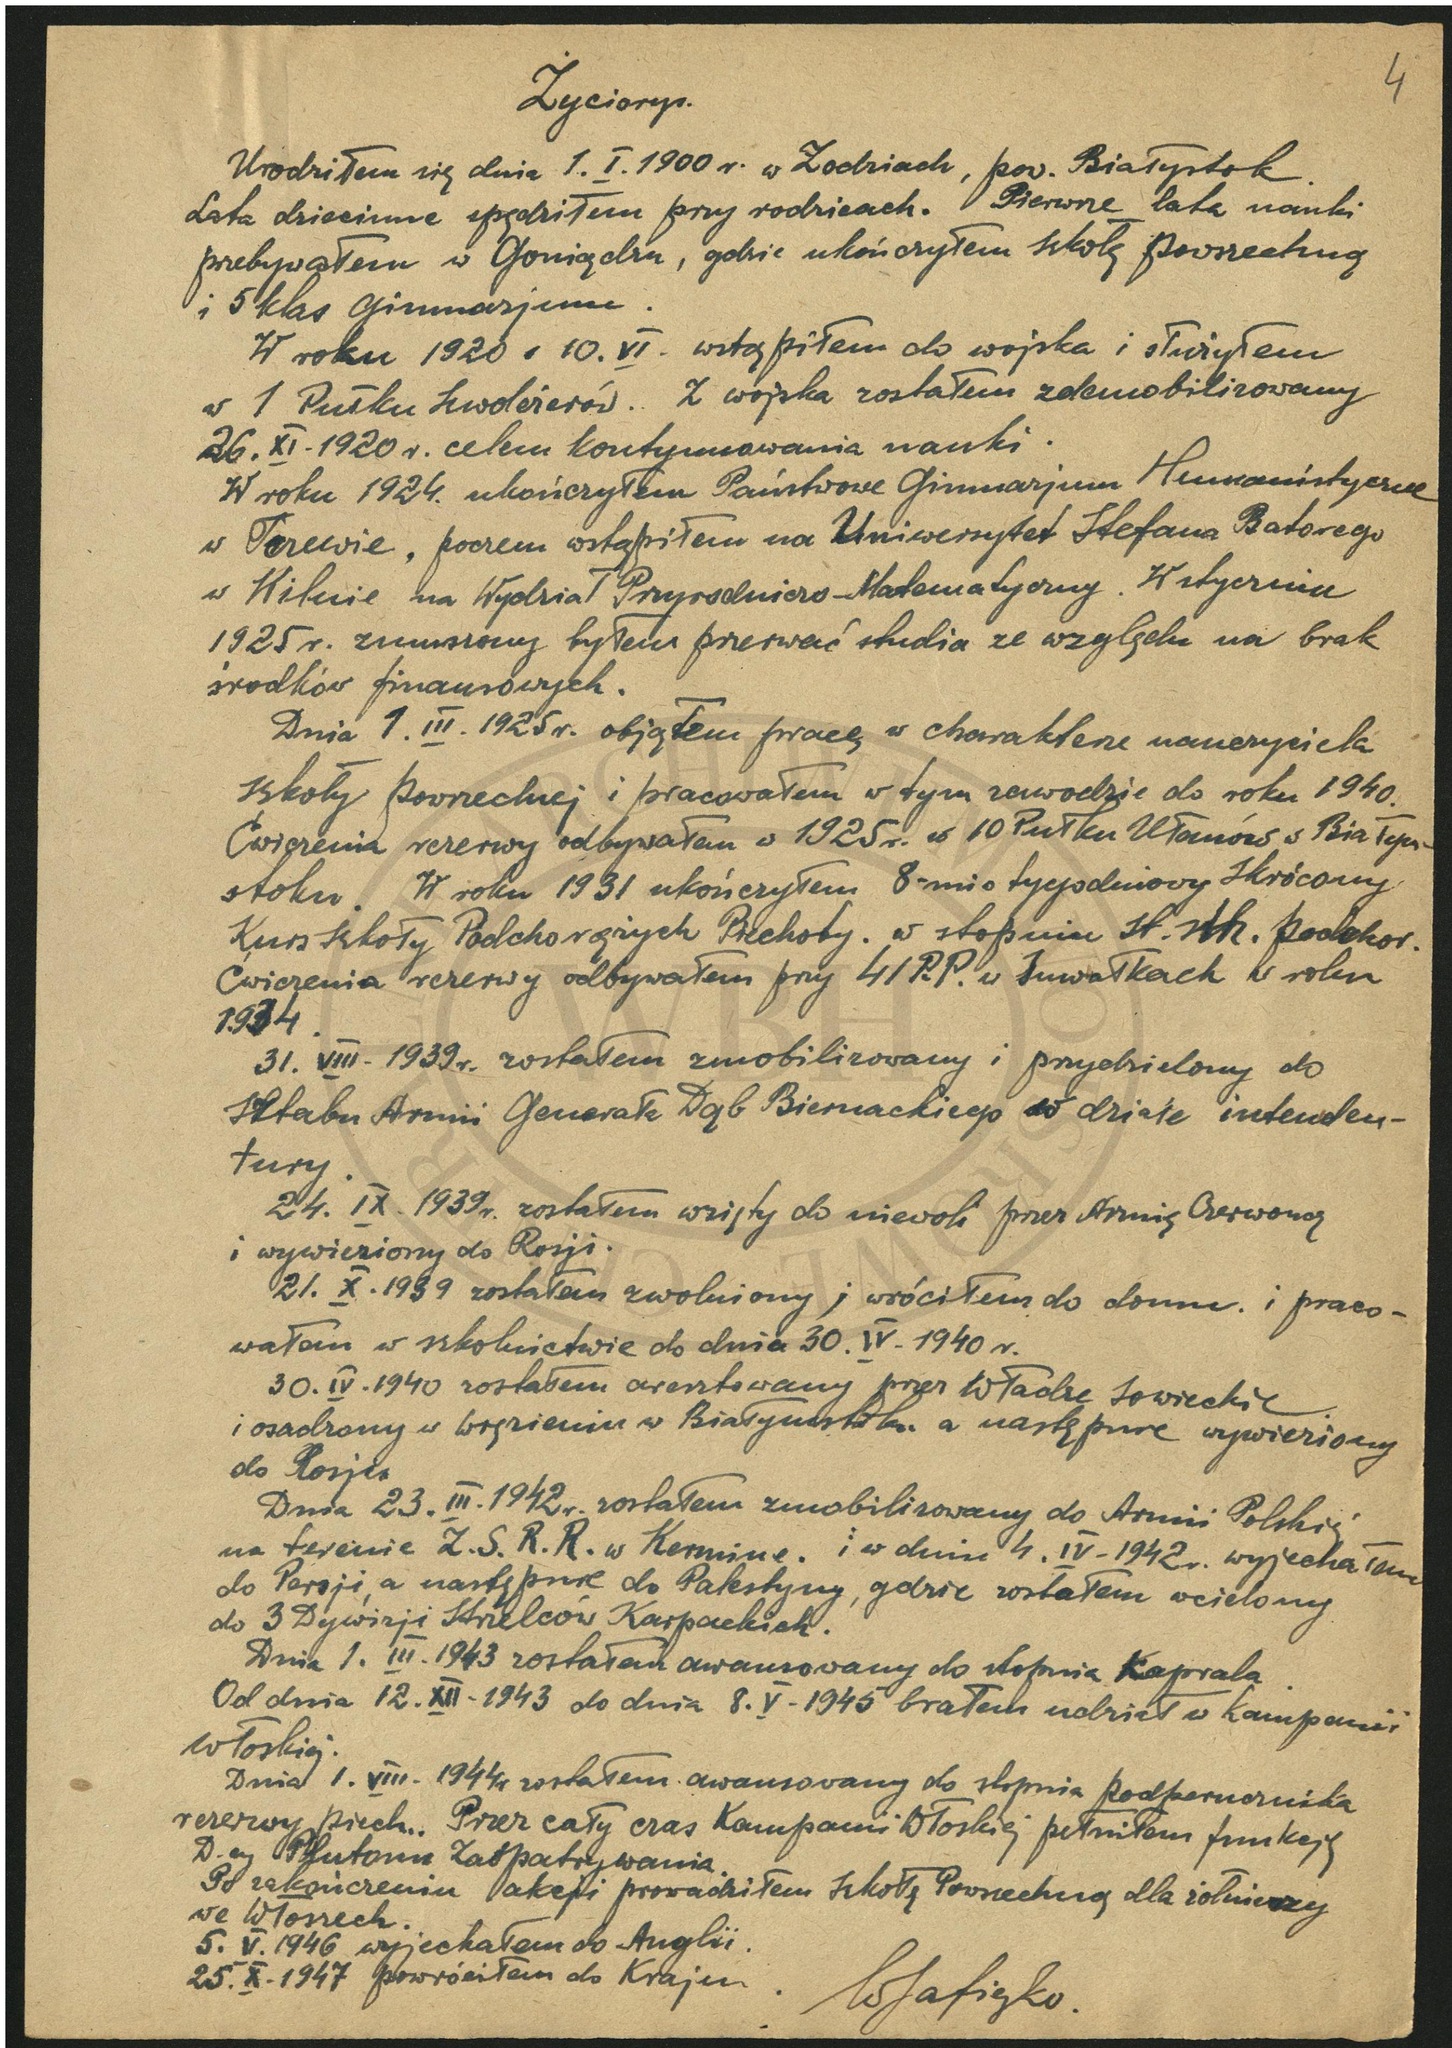 4
Życiorys.
Urodziłem się dnia 1. I. 1900 r. w Zodziach, pow. Białystok.
Lata dziecinne spędziłem przy rodzicach. Pierwsze lata nauki
przebywałem w Goniądzu, gdzie ukończyłem szkołę powszechną
i 5 klas Gimnazjum.
W roku 1920 10. VI. wstąpiłem do wojska i służyłem
w 1 Pułku Szwoleżerów. Z wojska zostałem zdemobilizowany
26. XI. 1920 r. celem kontynuowania nauki.
W roku 1924. ukończyłem Państwowe Gimnazjum Humanistyczne
w Tczewie, poczem wstąpiłem na Uniwersytet Stefana Batorego
w Wilnie na Wydział Przyrodniczo-Matematyczny. W styczniu
1925 r. zmuszony byłem przerwać studia ze względu na brak
środków finansowych.
Dnia 1. III. 1925 r. objąłem pracę w charakterze nauczyciela
szkoły powszechnej i pracowałem w tym zawodzie do roku 1940.
Ćwiczenia rezerwy odbywałem w 1925 r. w 10 Pułku Ułanów w Białym-
stoku. W roku 1931 ukończyłem 8-mio tygodniowy Skrócony
Kurs Szkoły Podchorążych Piechoty. w stopniu st. strz. podchor.
Ćwiczenia rezerwy odbywałem przy 41 P.P. w Suwałkach w roku
1934.
31. VIII. 1939 r. zostałem zmobilizowany i przydzielony do
Sztabu Armii Generała Dąb Biernackiego w dziale intenden-
tury.
24. IX. 1939 r. zostałem wzięty do niewoli przez Armię Czerwoną
i wywieziony do Rosji.
21. X. 1939 zostałem zwolniony j wróciłem do domu. i praco-
wałem w szkolnictwie do dnia 30. IV. 1940 r.
30. IV. 1940 zostałem aresztowany przez Władze Sowieckie
i osadzony w więzieniu w Białymstoku. a następnie wywieziony
do Rosji.
Dnia 23. III. 1942 r. zostałem zmobilizowany do Armii Polskiej
na terenie Z.S.R.R. w Kermine. i w dniu 4. IV. 1942 r. wyjechałem
do Persji, a następnie do Palestyny, gdzie zostałem wcielony
do 3 Dywizji Strzelców Karpackich.
Dnia 1. III. 1943 zostałem awansowany do stopnia Kaprala.
Od dnia 12. XII. 1943 do dnia 8. V. 1945 brałem udział w Kampanii
Włoskiej.
Dnia 1. VIII. 1944 r. zostałem awansowany do stopnia podporucznika
rezerwy piech.. Przez cały czas Kampanii Włoskiej pełniłem funkcję
D-cy Plutonu Zaopatrywania.
Po zakończeniu akcji prowadziłem Szkołę Powszechną dla żołnierzy
we Włoszech.
5. V. 1946 wyjechałem do Anglii.
25. X. 1947 powróciłem do Kraju.
WBH